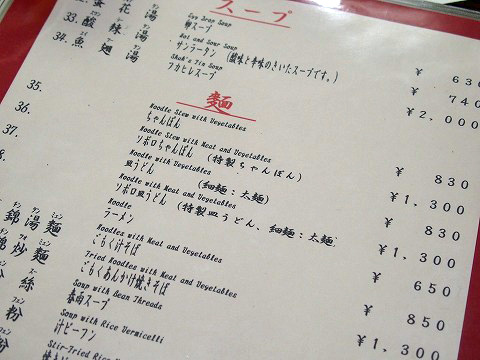 スープ
蛋花湯 Egg Drop Soup
卵スープ ¥ 630
33. 酸辣湯 Hot and Sour Soup
サンラータン (酸味と辛味のきいたスープです。) ¥ 740
34. 魚翅湯 Shark's Fin Soup
フカヒレスープ ¥ 2,000
麺
35. Noodle Stew with Vegetables
ちゃんぽん ¥ 830
36. Noodle Stew with Meat and Vegetables
ソボロちゃんぽん (特製ちゃんぽん) ¥ 1,300
37. Noodle with Vegetables
皿うどん (細麺:太麺) ¥ 830
8. Noodle with Meat and Vegetables
ソボロ皿うどん (特製皿うどん、細麺:太麺) ¥ 1,300
Noodle
ラーメン ¥ 650
錦湯麺 Noodles with Meat and Vegetables
ごもく汁そば ¥ 850
錦炒麺 Fried Noodles with Meat and Vegetables
ごもくあんかけ焼きそば ¥ 1,300
絲 Soup with Bean Threads
春雨スープ
粉 Soup with Rice Vermicelli
汁ビーフン
粉 Stir-Fried Rice